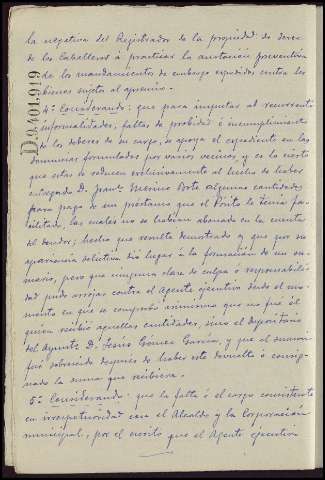 la negativa del Registrador de la propiedad de Jerez
de los Caballeros á practicar la anotación preventiva
de los mandamientos de embargo expedidos contra los
bienes sujetos al apremio.-
4º Considerando: que para imputar al recurrente
informalidades, faltas de probidad é incumplimiento
de los deberes de su cargo, se apoya el expediente en las
denuncias formuladas por varios vecinos, y es lo cierto
que estas se reducen exclusivamente al hecho de haber
entregado D. Franco Merino Borta algunas cantidades
para pago de un préstamo que el Pósito le tenía fa-
cilitado, las cuales no se habían abonado en la cuenta
del deudor; hecho que resulta demostrado y que por su
apariencia delictiva dió lugar á la formación de un su-
mario, pero que ninguna clase de culpa ó responsabili-
dad pudo arrojar contra el Agente ejecutivo desde el mo-
mento en que se comprobó asimismo que no fué él
quien recibió aquellas cantidades, sino el depositario
del Ayunto D. Jesús Gómez García, y que el sumario
fué sobreseido después de haber este devuelto ó consig-
nado la suma que recibiera.-
5º Considerando: que la falta ó el cargo consistente
en irrespetuosidad con el Alcalde y la Corporación
municipal, por el escrito que el Agente ejecutivo
D.9.401.919